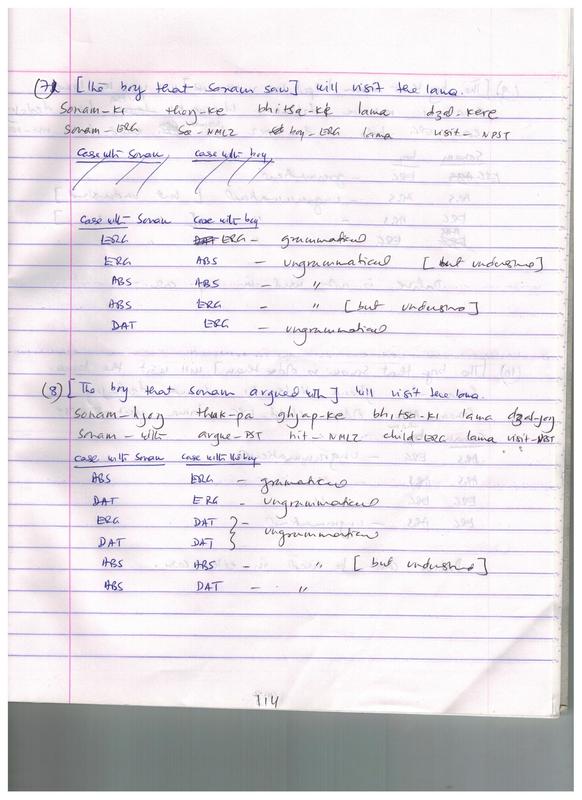 (7) [The boy that sonam saw] will visit the lama.
Sonam-ki thoŋ-ke bhitsa-ki lama dzal-kere
Sonam-ERG See-NMLZ boy-ERG lama visit-NPST
Case with Sonam case with boy
Case with Sonam Case with boy
ERG ERG - grammatical
ERG ABS - ungrammatical [but undusno]
ABS ABS - "
ABS ERG - " [but undusno]
DAT ERG - ungrammatical
(8) [The boy that sonam argued with] will visit the lama.
Sonam-hjoŋ thuk-pa ghjap-ke bhitsa-ki lama dzal-joŋ
Sonam-with argue-PST hit-NMLZ child-ERG lama visit-NPST
Case with Sonam case with the boy
ABS ERG - grammatical
DAT ERG - ungrammatical
ERG DAT } -
DAT DAT } ungrammatical
ABS ABS - " [but undusno]
ABS DAT - "
114